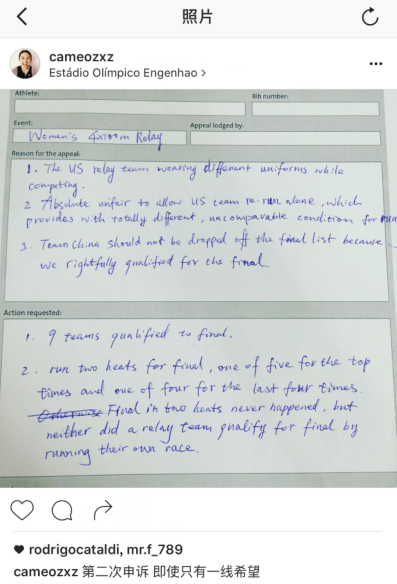 照片
cameozxz
Estádio Olímpico Engenhao >
Athlete:
Bib number:
Event:
Appeal lodged by:
Women's 4x100m Relay
Reason for the appeal:
1. The US relay team wearing different uniforms while
competing.
2 Absolute unfair to allow US team re-run alone, which
provides with totally different, uncomparable condition for run
3. Team China should not be dropped off the final list because
we rightfully qualified for the final.
Action requested:
1. 9 teams qualified to final.
2. run two heats for final, one of five for the top
times and one of four for the last four times.
Otherwise Final in two heats never happened, but
neither did a relay team qualify for final by
running their own race.
rodrigocataldi, mr.f_789
cameozxz 第二次申诉 即使只有一线希望